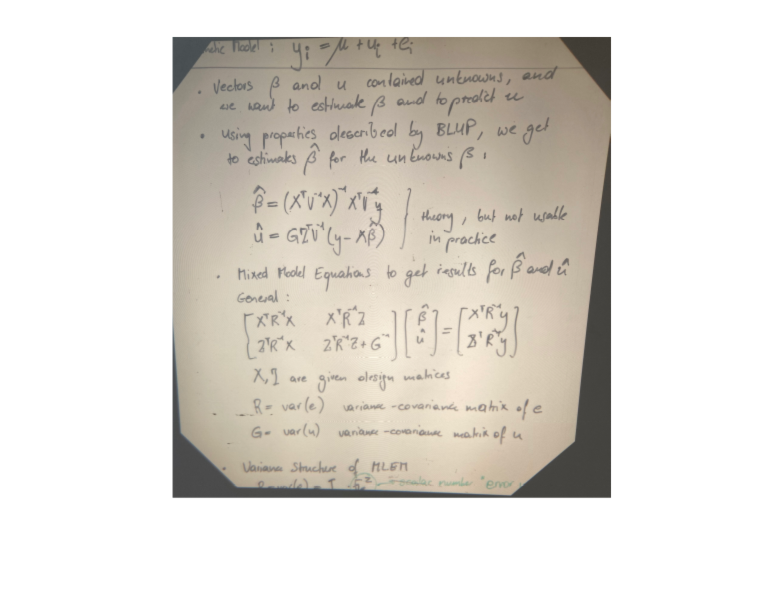 Model : yᵢ = μ + uᵢ + eᵢ
• Vectors β and u contained unknowns, and
we want to estimate β and to predict u
• Using properties described by BLUP, we get
to estimaks β̂ for the unknowns β :
β̂ = (XᵀV⁻¹X)⁻¹ XᵀV⁻¹y
û = GZᵀV⁻¹(y − Xβ̂)
theory, but not usable
in practice
• Mixed Model Equations to get results for β̂ and û
General :
[XᵀR⁻¹X XᵀR⁻¹Z] [β̂] = [XᵀR⁻¹y]
[ZᵀR⁻¹X ZᵀR⁻¹Z + G⁻¹] [û] [ZᵀR⁻¹y]
X, Z are given design matices
R = var(e) variance-covariance matrix of e
G = var(u) variance-covariance matrix of u
• Variance Structure of MLEM
"error